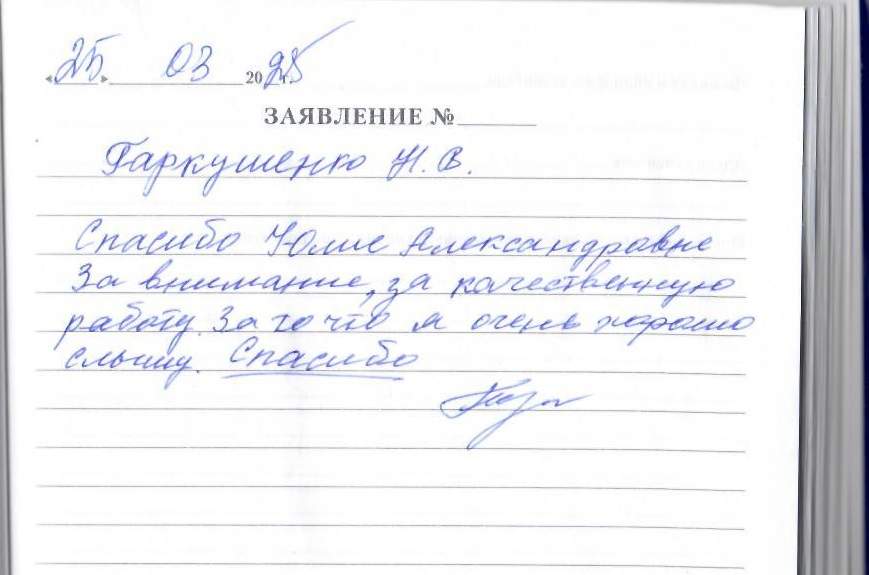 «25» 03 2025 г.
ЗАЯВЛЕНИЕ №
Гаркушенко Н. В.
Спасибо Юлие Александровне
За внимание, за качественную
работу. За то что я очень хорошо
слышу. Спасибо